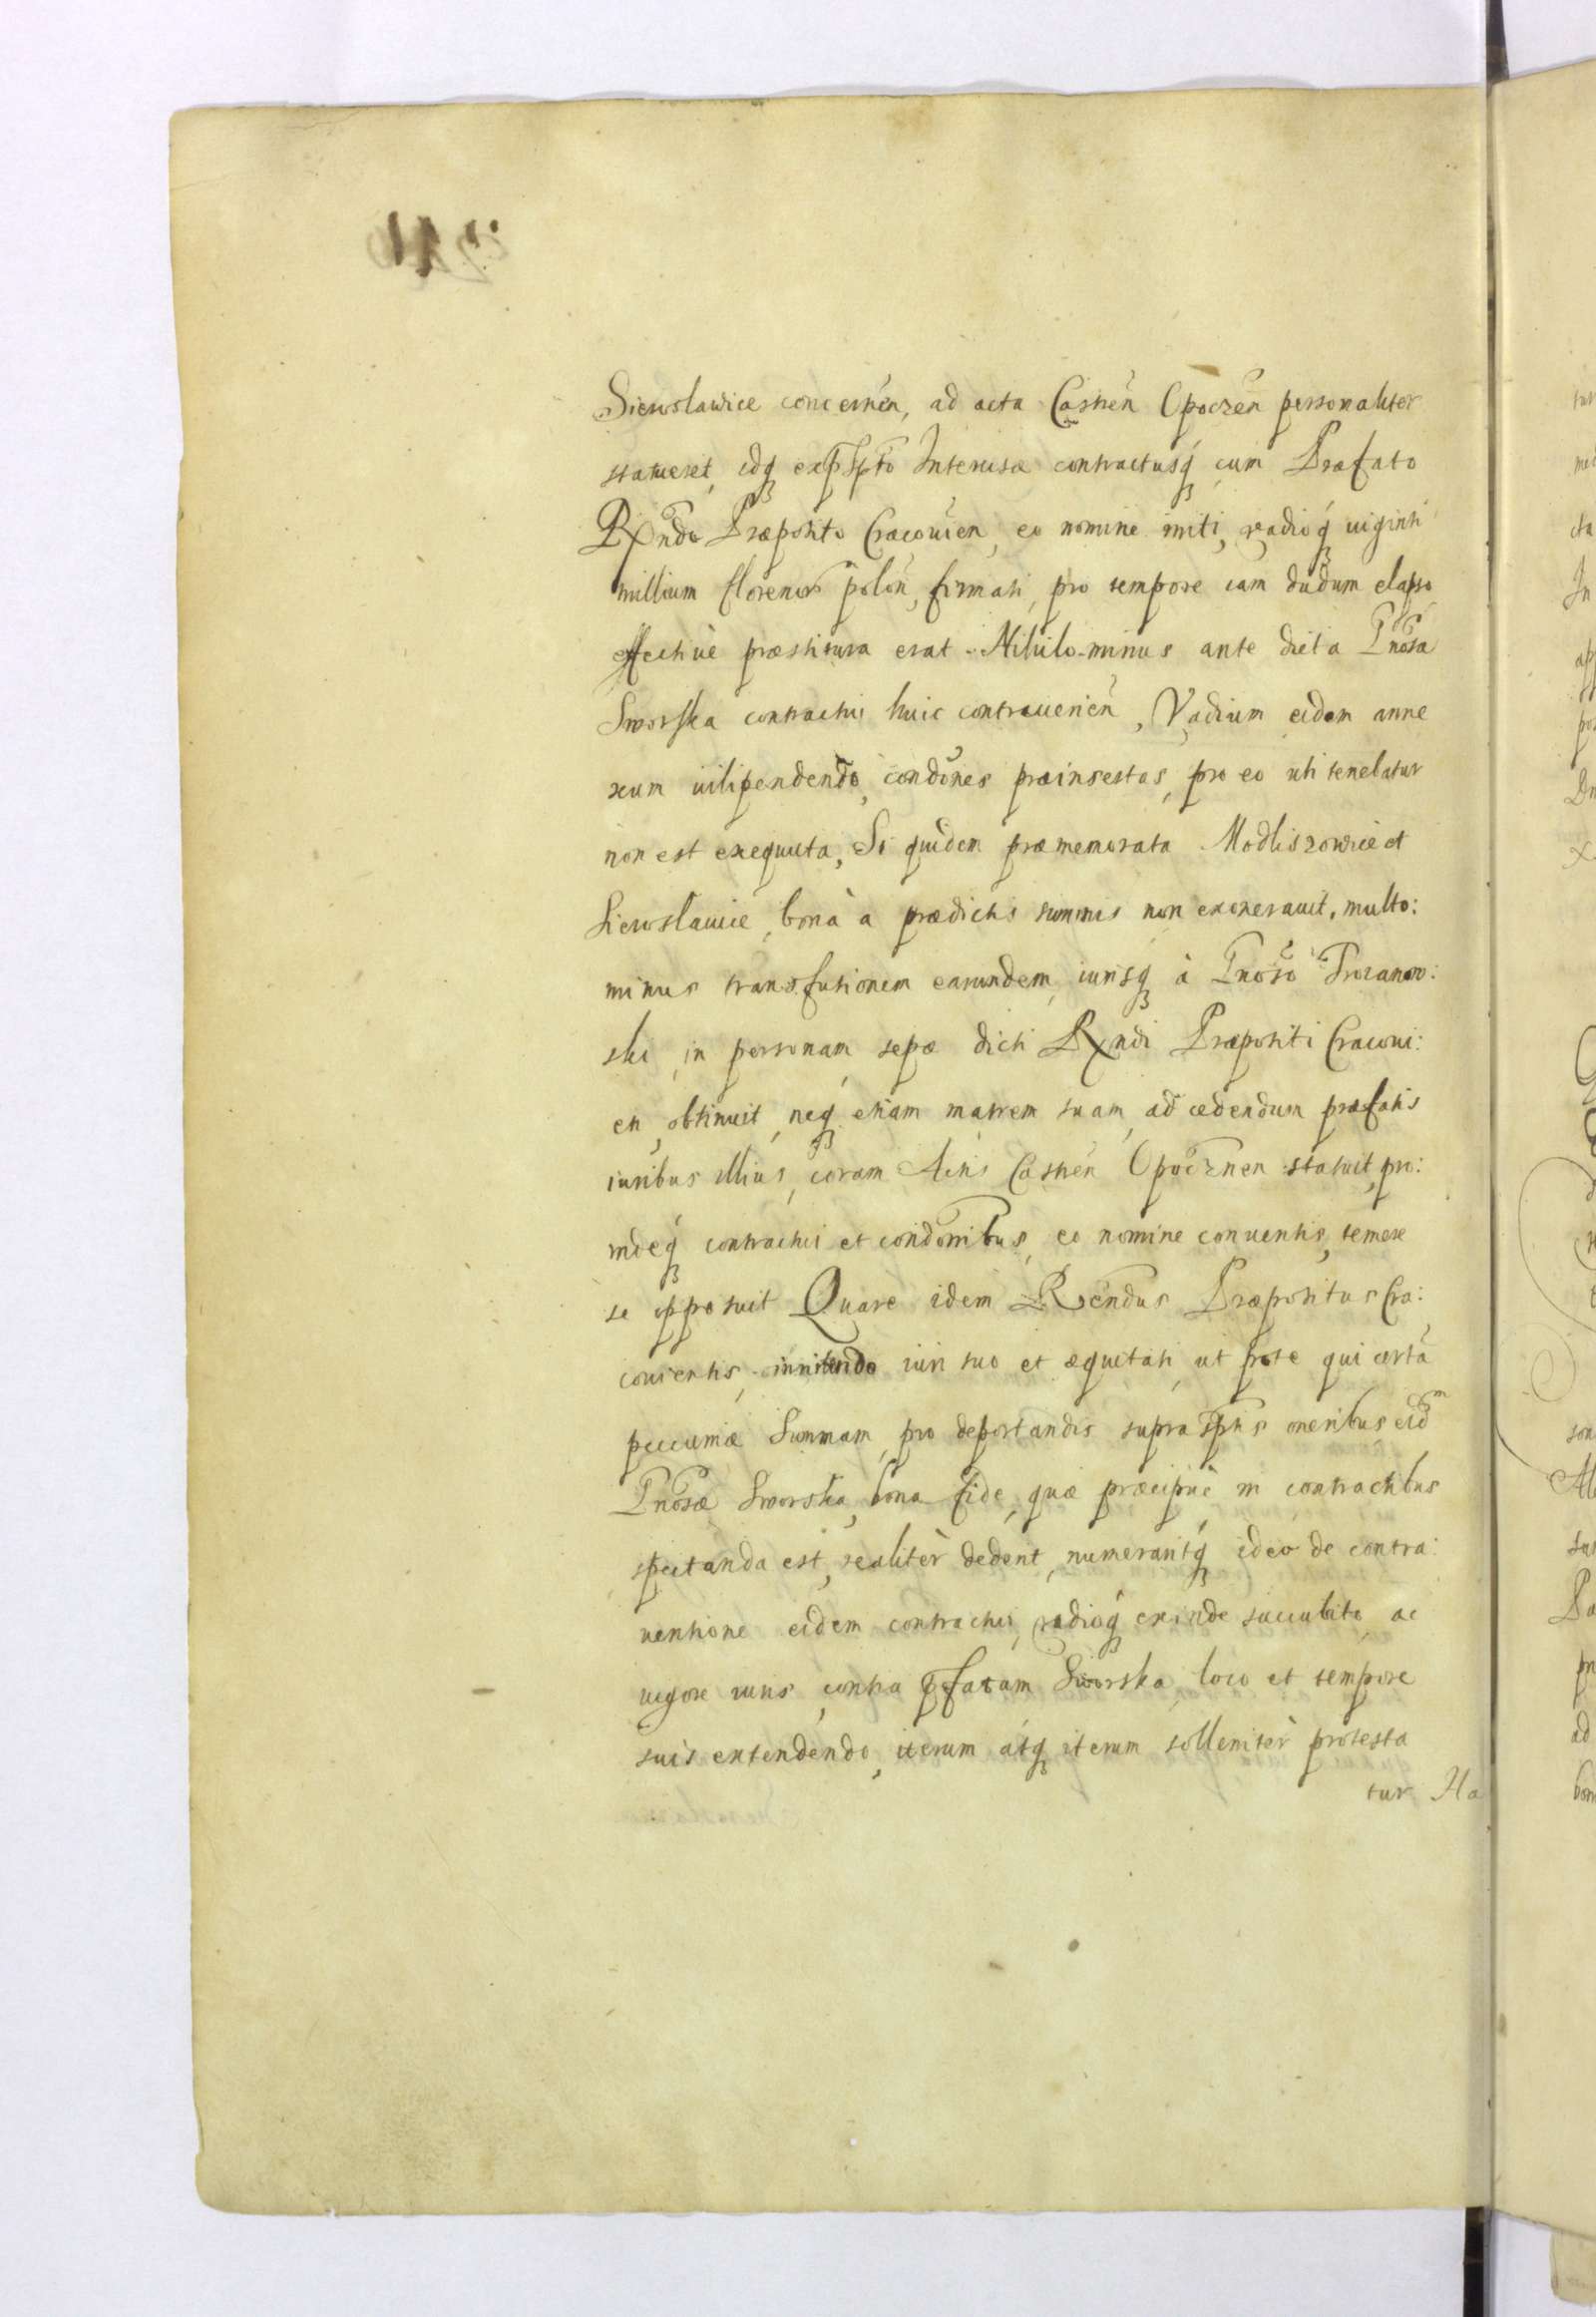 Sierosławice concernen, ad acta Castren Opoczen personaliter
statueret, idq ex pscpto Intercisæ contractusq cum Præfato
Rxndo Præposito Cracouien, eo nomine initi, vadioq uiginti
millium florenor polon, firmati, pro tempore iam dudum elapso
effectiuè præstitura erat. Nihilo-minus ante dicta Gnosa
Sworska contractui huic contrauenien, Vadium eidem anne
xum uilipendendo, condones præinsertas, pro eo uti tenebatur
non est exequuta, Si quidem præmemorata Modliszowice et
Sierosławice, bona à prædictis summis non exonerauit, multo:
minus transfusionem earundem, iurisq à Gnoso Trozanow:
ski, in personam sepæ dicti Rxndi Præpositi Cracoui:
en, obtinuit, neq etiam matrem suam, ad cedendum præfatis
iuribus illius, coram Actis Castren Opocznen statuit, pro:
indeq contractui et condonibus, eo nomine conuentis, temere
se opposuit Quare idem Rxendus Præpositus Cra:
couiensis, innitendo iuri suo et æquitati, ut pote qui certã
pecuniæ Summam, pro deportandis supra sptis oneribus eidm
Gnosæ Sworska, bona fide, quæ præcipuè in contractibus
spectanda est, realitèr dederit, numerauitq ideo de contra:
uentione eidem contractui, vadioq exinde succubito, ac
uigore iuris, contra pfatam Sworska, loco et tempore
suis extendendo, iterum atq iterum sollenitèr protesta
tur Ha